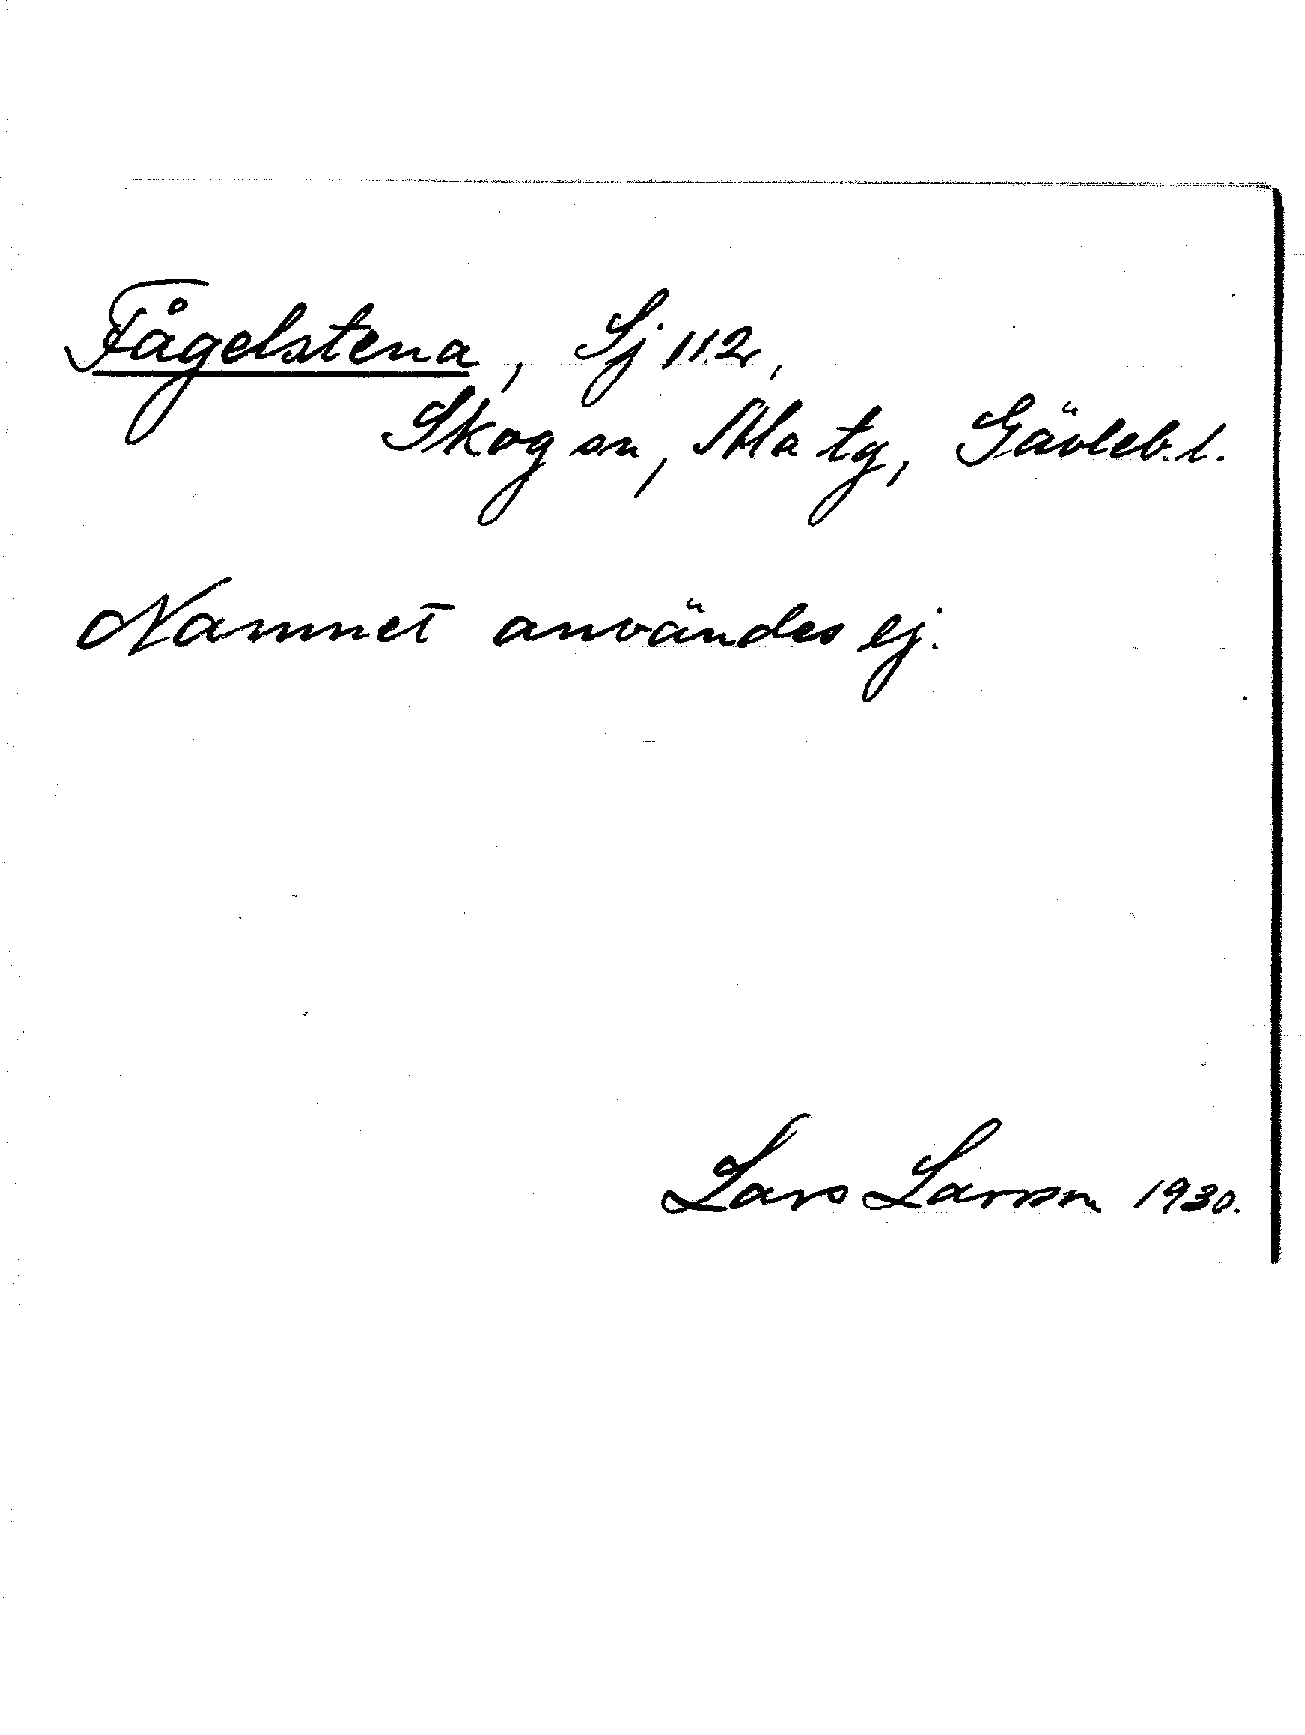 Fågelstena, Sj 112,
Skog sn, Ala tg, Gävleb. l.
Namnet användes ej.
Lars Larsson 1930.